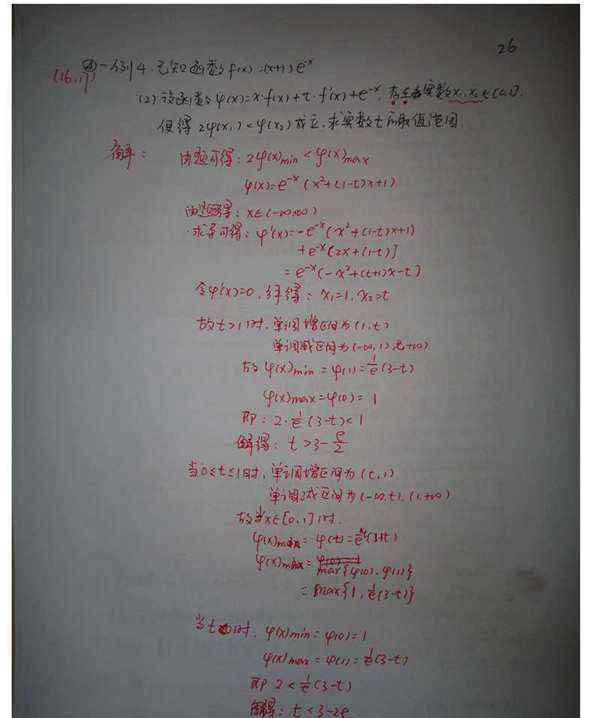 26
(16.17)
例4. 已知函数f(x)=(x+1)e^-x
(2) 设函数φ(x)=x·f(x)+t·f'(x)+e^-x, 存在实数x₁,x₂∈[0,1],
使得 2φ(x₁)<φ(x₂)成立, 求实数t的取值范围.
解: 由题可得: 2φ(x)min<φ(x)max
φ(x)=e^-x(x²+(1-t)x+1)
由题得: x∈(-∞,+∞)
求导可得: φ'(x)=-e^-x(x²+(1-t)x+1)
+e^-x[2x+(1-t)]
=e^-x[-x²+(t+1)x-t]
令φ'(x)=0, 解得: x₁=1, x₂=t
故t>1时, 单调增区间为(1,t)
单调减区间为(-∞,1),(t,+∞)
故φ(x)min=φ(1)=1/e(3-t)
φ(x)max=φ(0)=1
即: 2·1/e(3-t)<1
解得: t>3-e/2
当0≤t≤1时, 单调增区间为(t,1)
单调减区间为(-∞,t),(1,+∞)
故当x∈[0,1]时.
φ(t)=
max{φ(0),φ(1)}
=max{1,1/e(3-t)}
当t<0时, φ(x)min=φ(0)=1
φ(x)max=φ(1)=1/e(3-t)
即 2<1/e(3-t)
解得: t<3-2e